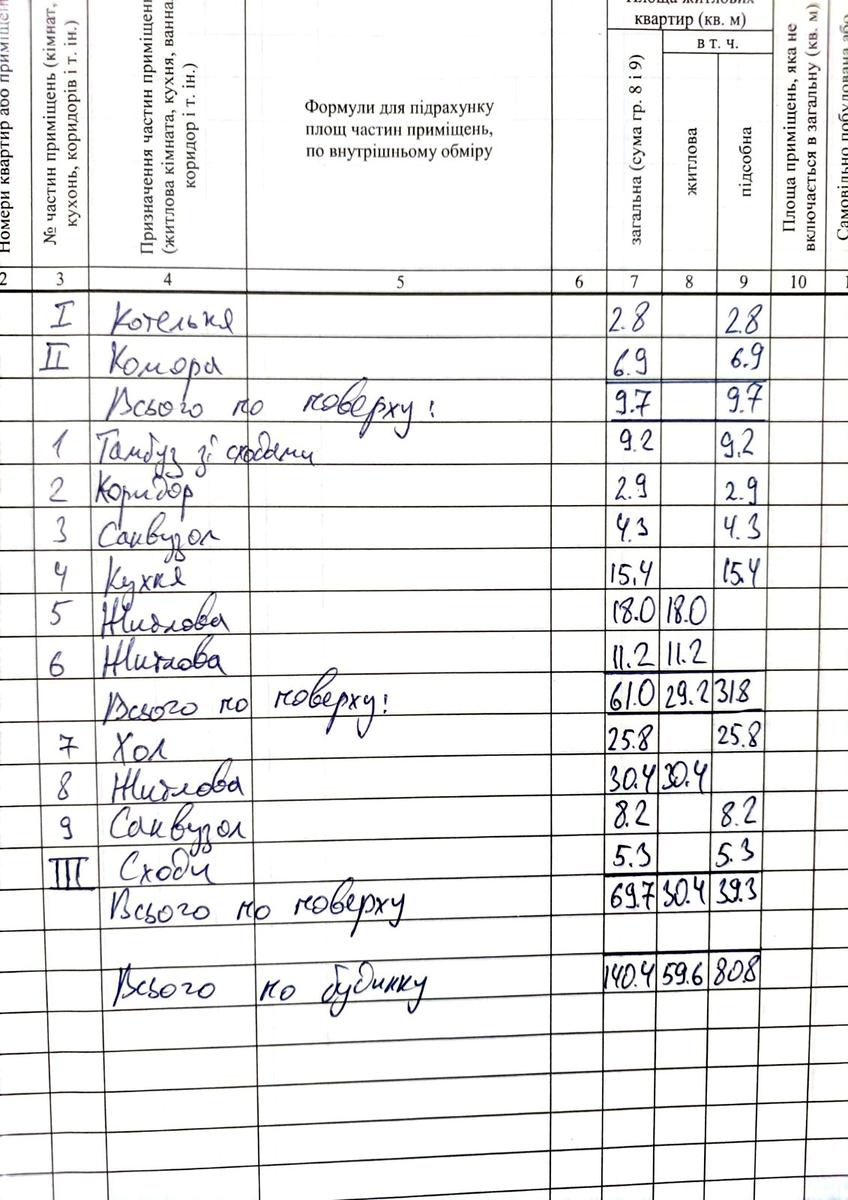 Номери квартир або приміщень
№ частин приміщень (кімнат,
кухонь, коридорів і т. ін.)
Призначення частин приміщень
(житлова кімната, кухня, ванна,
коридор і т. ін.)
Формули для підрахунку
площ частин приміщень,
по внутрішньому обміру
Площа житлових
квартир (кв. м)
загальна (сума гр. 8 і 9)
в т. ч.
житлова
підсобна
Площа приміщень, яка не
включається в загальну (кв. м)
Самовільно побудована або
2 3 4 5 6 7 8 9 10 1
I Котельня 2.8 2.8
II Комора 6.9 6.9
Всього по поверху: 9.7 9.7
1 Тамбуз зі сходами 9.2 9.2
2 Коридор 2.9 2.9
3 Санвузол 4.3 4.3
4 Кухня 15.4 15.4
5 Житлова 18.0 18.0
6 Житлова 11.2 11.2
Всього по поверху: 61.0 29.2 31.8
7 Хол 25.8 25.8
8 Житлова 30.4 30.4
9 Санвузол 8.2 8.2
III Сходи 5.3 5.3
Всього по поверху 69.7 30.4 39.3
Всього по будинку 140.4 59.6 80.8